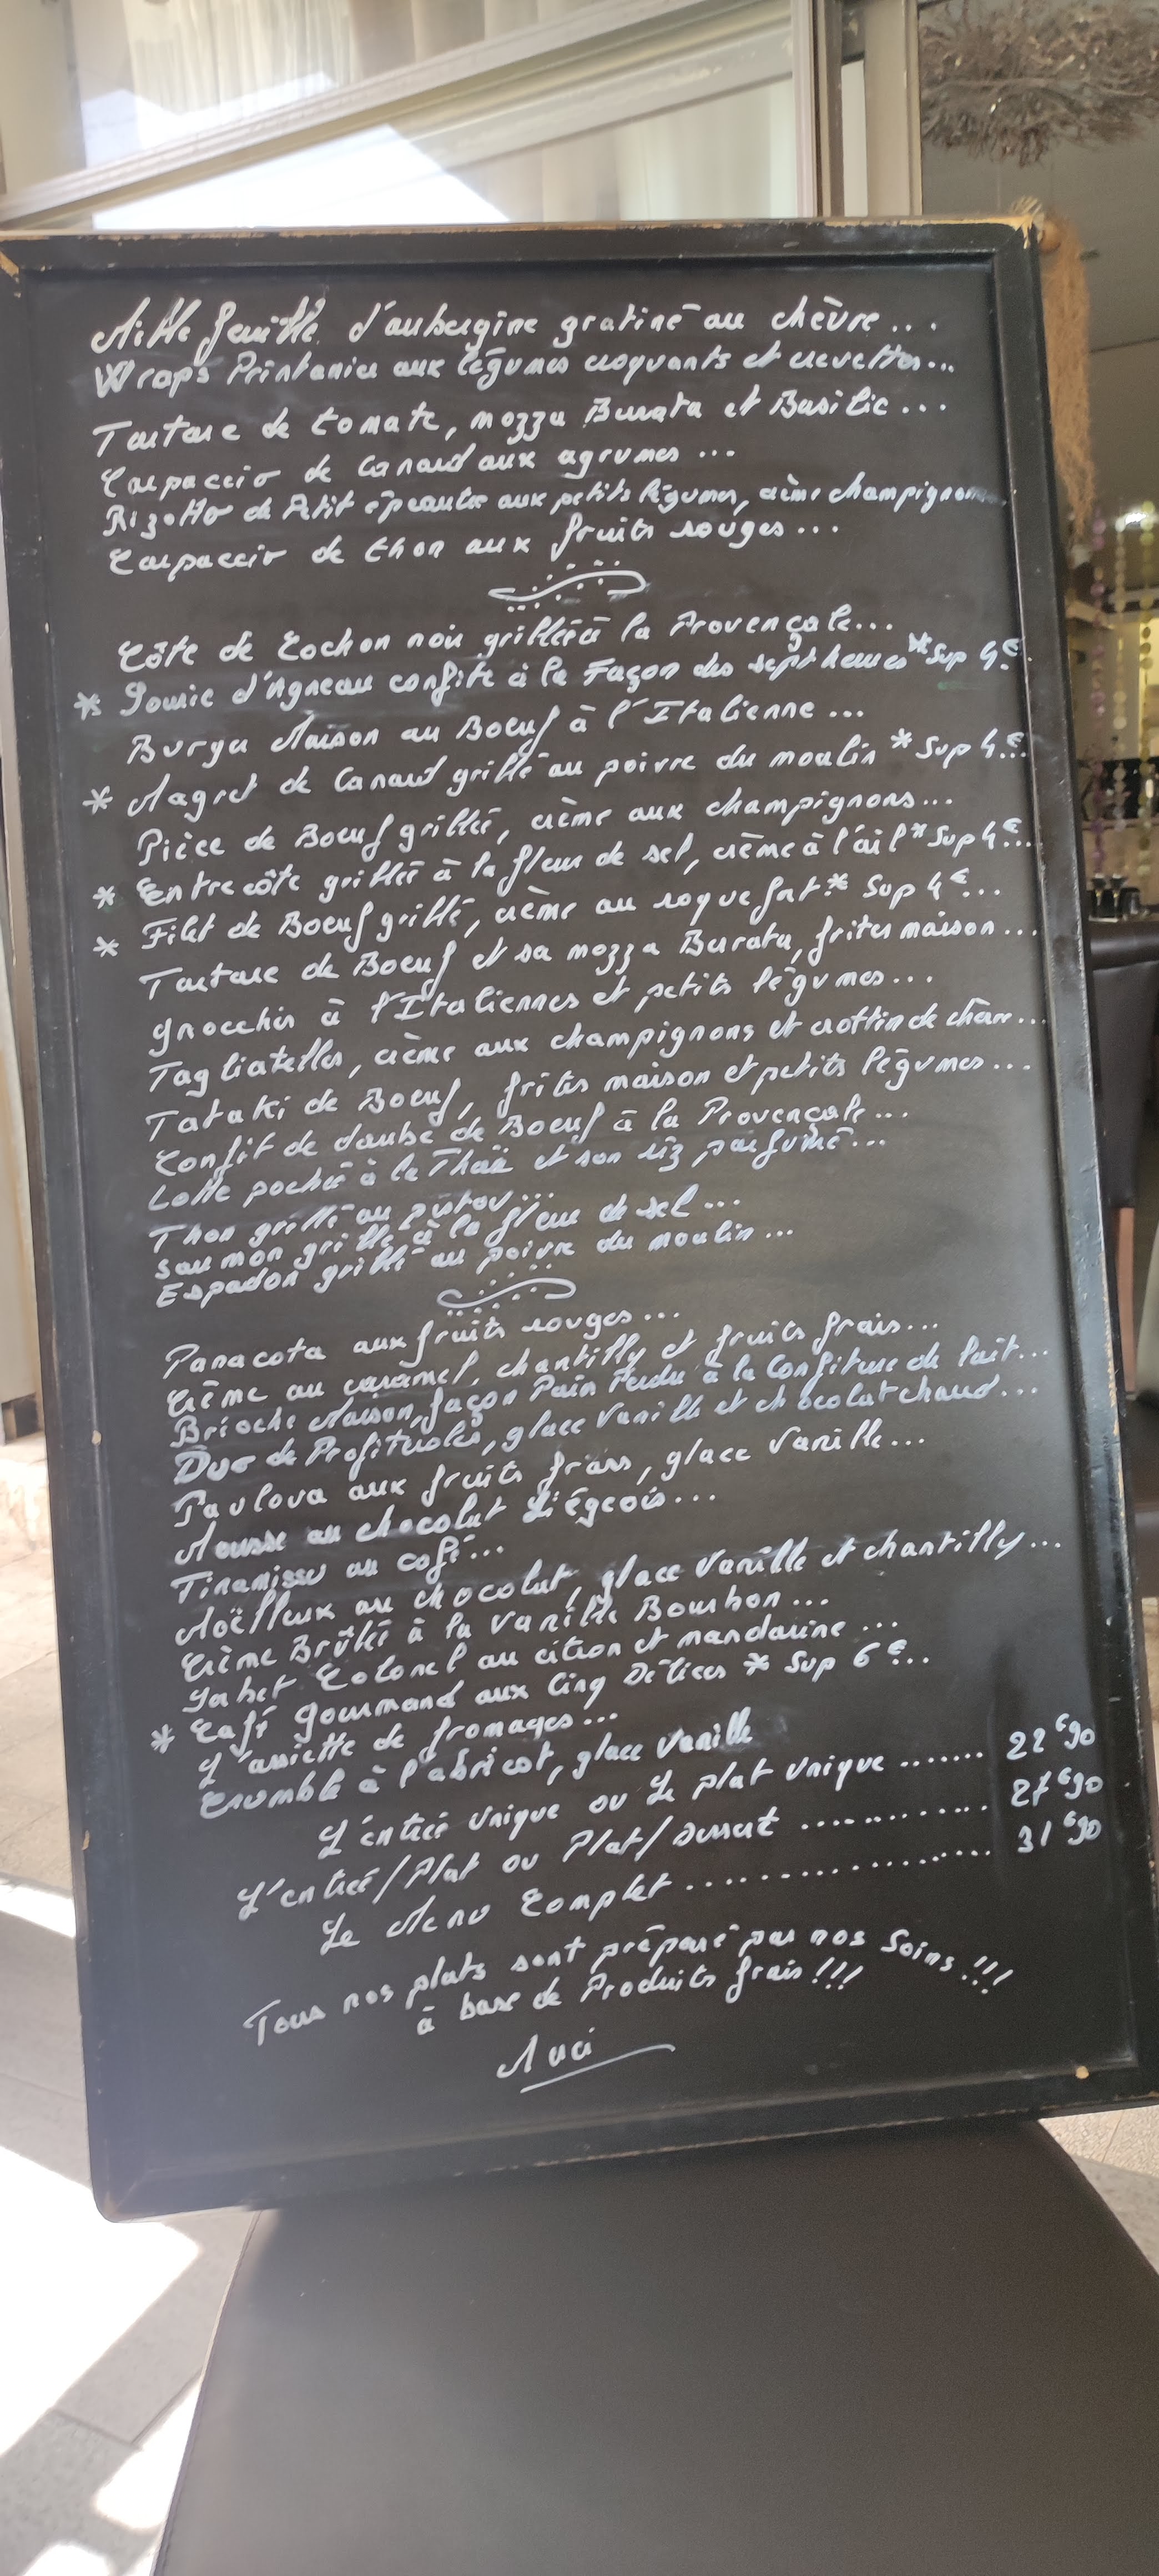 Mille feuille d'aubergine gratiné au chèvre...
Wraps Printanier aux légumes croquants et crevettes...
Tartare de tomate, mozza Burata et Basilic...
Carpaccio de Canard aux agrumes...
Rizotto de Petit épeautre aux petits légumes, crème champignons
Carpaccio de thon aux fruits rouges...
Côte de Cochon noir grillée à la Provençale...
* Souris d'Agneau confite à la Façon des sept heures * Sup 4€.
Burger Maison au Boeuf à l'Italienne...
* Magret de Canard grillé au poivre du moulin * Sup 4€...
Pièce de Boeuf grillée, crème aux champignons...
* Entrecôte grillée à la fleur de sel, crème à l'ail * Sup 4€...
* Filet de Boeuf grillé, crème au roquefort * Sup 4€...
Tartare de Boeuf et sa mozza Burata, frites maison...
Gnocchis à l'Italiennes et petits légumes...
Tagliatelles, crème aux champignons et crottin de chèvre...
Tataki de Boeuf, frites maison et petits légumes...
Confit de daube de Boeuf à la Provençale...
Lotte pochée à la Thaï et son riz parfumé...
Thon grillé au pistou...
Saumon grillé à la fleur de sel...
Espadon grillé au poivre du moulin...
Panacota aux fruits rouges...
Crème au caramel, chantilly et fruits frais...
Brioche Maison, façon Pain Perdu à la Confiture de lait...
Duo de Profiteroles, glace Vanille et chocolat chaud...
Pavlova aux fruits frais, glace Vanille...
Mousse au chocolat Liégeois...
Tiramissu au café...
Moëlleux au chocolat, glace Vanille et chantilly...
Crème Brûlée à la Vanille Bourbon...
Sorbet Colonel au citron et mandarine...
* Café Gourmand aux Cinq Délices * Sup 6€...
L'assiette de fromages...
Crumble à l'abricot, glace Vanille
L'entrée unique ou Le plat unique ....... 22€90
L'entrée/Plat ou Plat/Dessert ............ 27€90
Le Menu Complet ................... 31€90
Tous nos plats sont préparé par nos Soins !!!
à base de Produits frais !!!
Merci